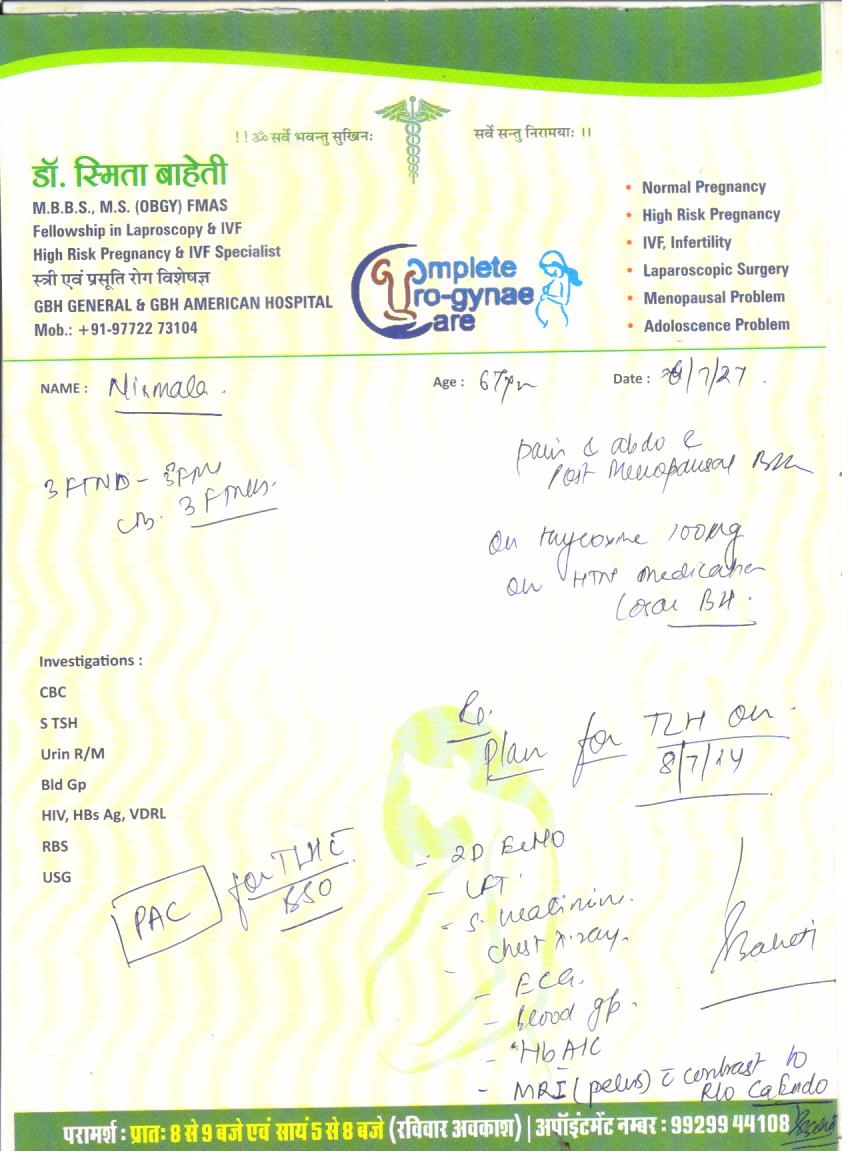 !! ॐ सर्वे भवन्तु सुखिनः सर्वे सन्तु निरामयाः ।।
डॉ. स्मिता बाहेती
M.B.B.S., M.S. (OBGY) FMAS
Fellowship in Laproscopy & IVF
High Risk Pregnancy & IVF Specialist
स्त्री एवं प्रसूति रोग विशेषज्ञ
GBH GENERAL & GBH AMERICAN HOSPITAL
Mob.: +91-97722 73104
Complete
Uro-gynae
Care
• Normal Pregnancy
• High Risk Pregnancy
• IVF, Infertility
• Laparoscopic Surgery
• Menopausal Problem
• Adoloscence Problem
NAME : Nirmala . Age : 67yr Date : /7/27 .
3 FTND -
3
pain abdo
Post Menopausal
On thyroxine 100µg
on HTN medication
BH .
Investigations :
CBC
S TSH
Urin R/M
Bld Gp
HIV, HBs Ag, VDRL
RBS
USG
Plan for TLH on .
8/7/24
PAC for TLH c̄
BSO
- 2D ECHO
- LFT
- S. creatinine.
- chest x-ray.
- ECG.
- Blood gp.
- HbA1C
- MRI (pelvis) c̄ contrast to
R/o Ca Endo
Baheti
परामर्श : प्रातः 8 से 9 बजे एवं सायं 5 से 8 बजे (रविवार अवकाश) | अपॉइंटमेंट नम्बर : 99299 44108